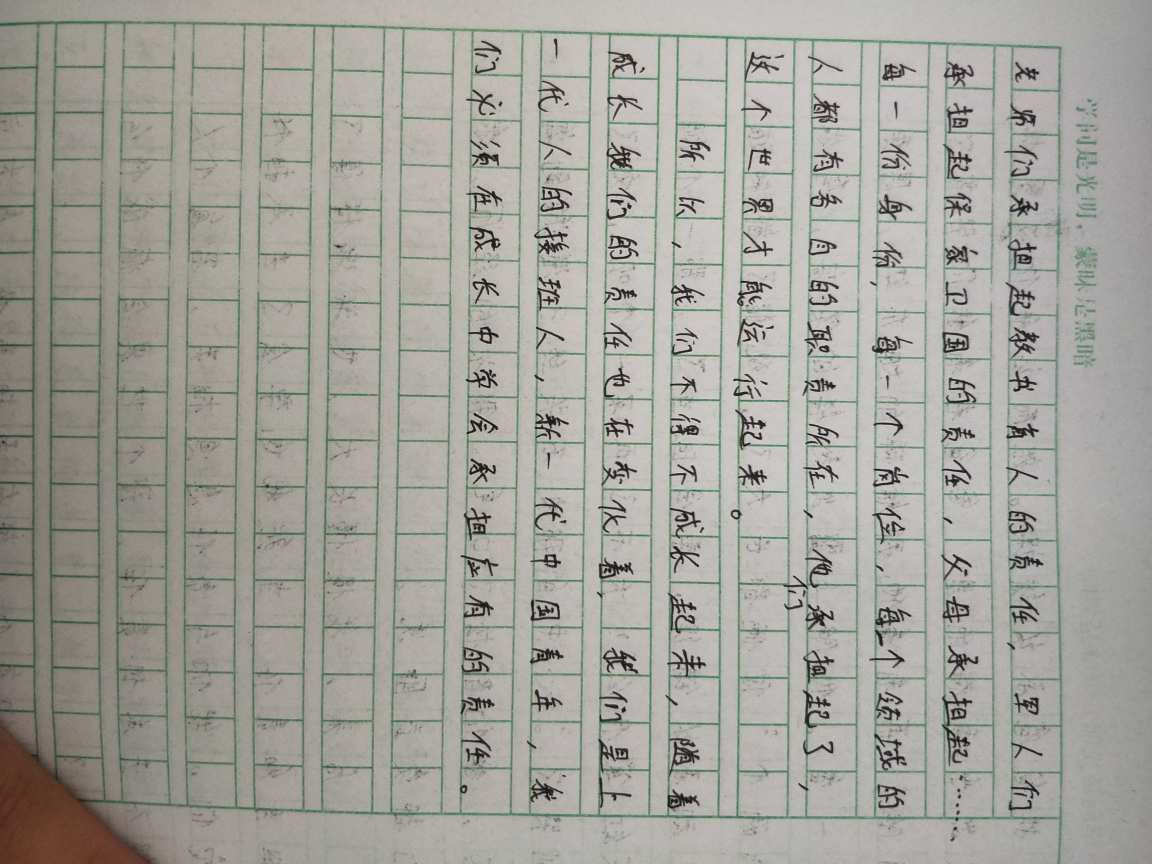 学问是光明，蒙昧是黑暗
老师们承担起教书育人的责任，军人们
承担起保家卫国的责任，父母承担起……
每一份身份，每一个岗位，每一个领域的
人都有各自的职责所在，他们承担起了，
这个世界才能运行起来。
所以，我们不得不成长起来，随着
成长我们的责任也在变化着，我们是上
一代人的接班人，新一代中国青年，我
们必须在成长中学会承担应有的责任。